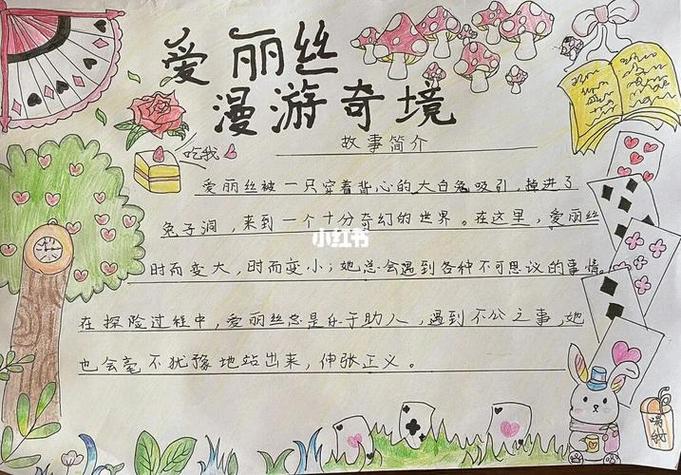 爱丽丝
漫游奇境
故事简介
吃我
爱丽丝被一只穿着背心的大白兔吸引，掉进了
兔子洞，来到一个十分奇幻的世界。在这里，爱丽丝
时而变大，时而变小；她总会遇到各种不可思议的事情。
在探险过程中，爱丽丝总是乐于助人，遇到不公之事，她
也会毫不犹豫地站出来，伸张正义。
小红书
喝我